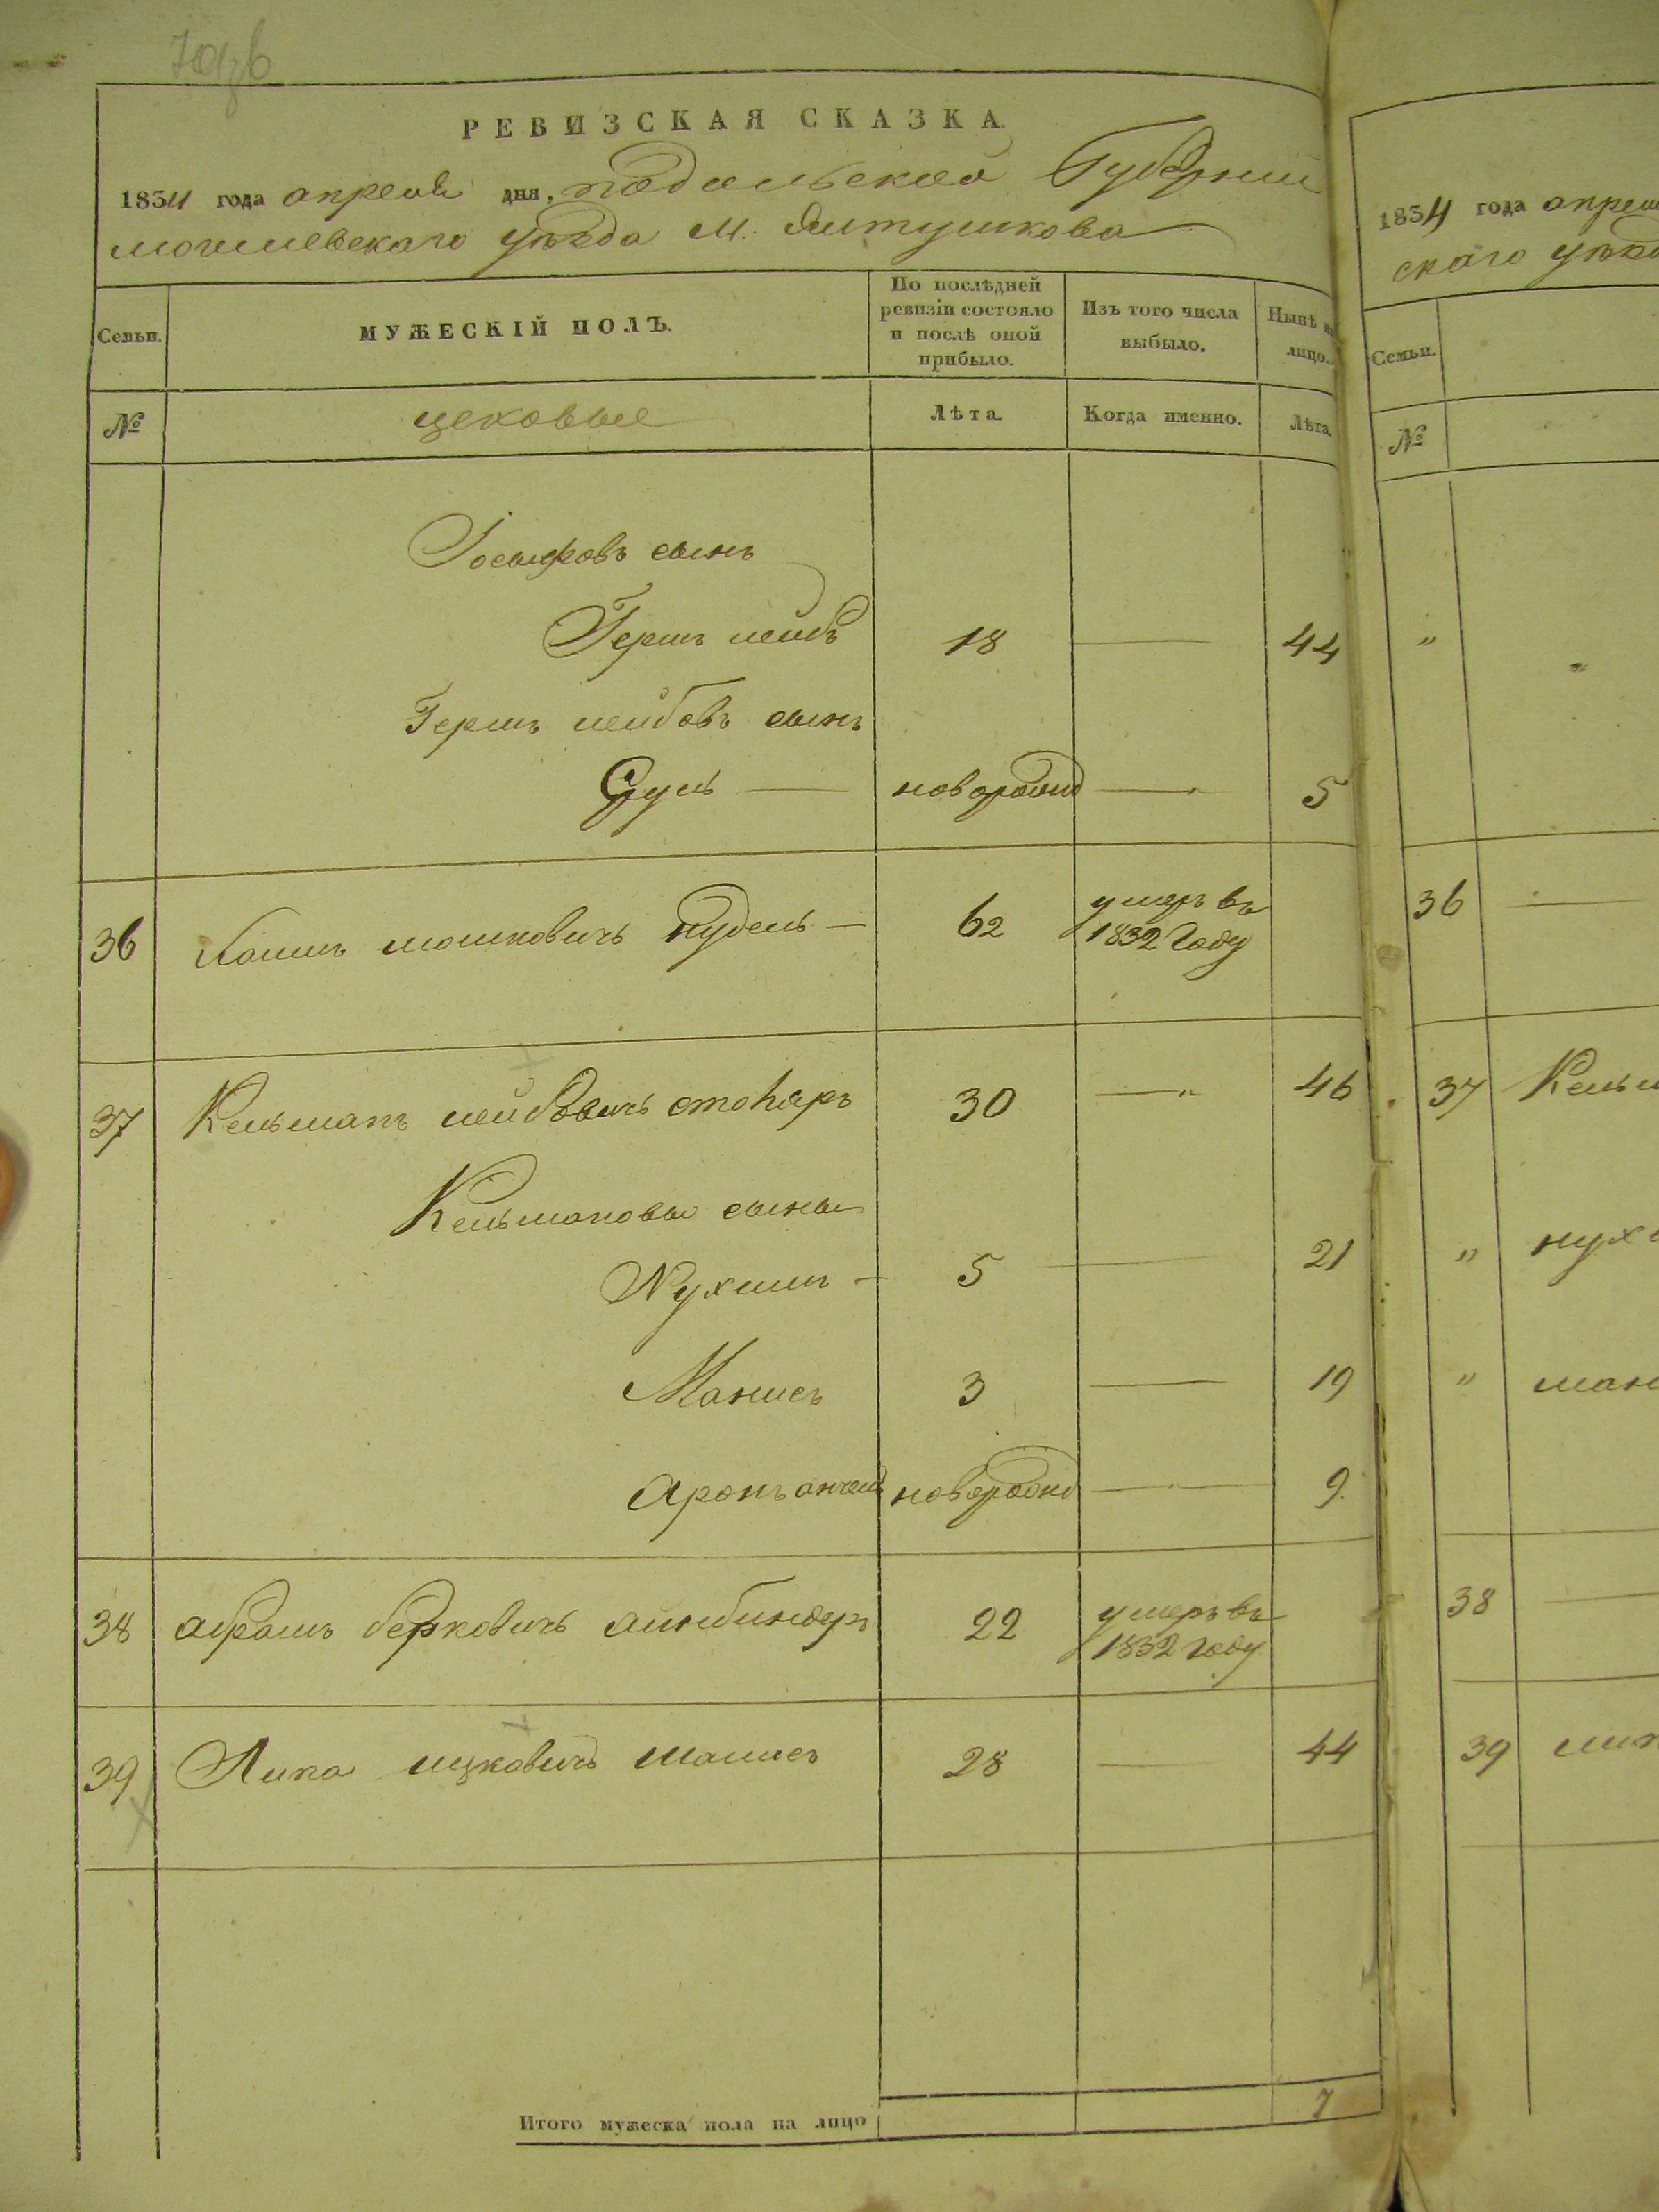 РЕВИЗСКАЯ СКАЗКА
1834 года апреля дня, Подольской Губернии
могилевскаго уѣзда М. Ялтушкова
Семьи.
МУЖЕСКІЙ ПОЛЪ.
По послѣдней
ревизіи состояло
и послѣ оной
прибыло.
Изъ того числа
выбыло.
Нынѣ на
лицо.
№
цеховые
Лѣта.
Когда именно.
Лѣта.
Іосифовъ сынъ
Гершъ лейбъ 18 — 44
Гершъ лейбовъ сынъ
Сруль — новорожд — 5
36 Хаимъ мошковичъ нудель — 62 умеръ въ
1832 Году
37 Кельманъ лейбовичъ столяръ 30 — 46
Кельмановы сыны
Нухимъ — 5 — 21
Манисъ 3 — 19
Аронъ анчель новорожд — 9.
38 абрамъ берковичъ айнбиндеръ 22 умеръ въ
1832 году
39 Липа ицковичъ 28 — 44
Итого мужеска пола на лицо 7
1834 года апреля
скаго уѣзда
Семьи.
№
"
36 —
37 Кельм
" нухи
" мани
38 —
39 лип